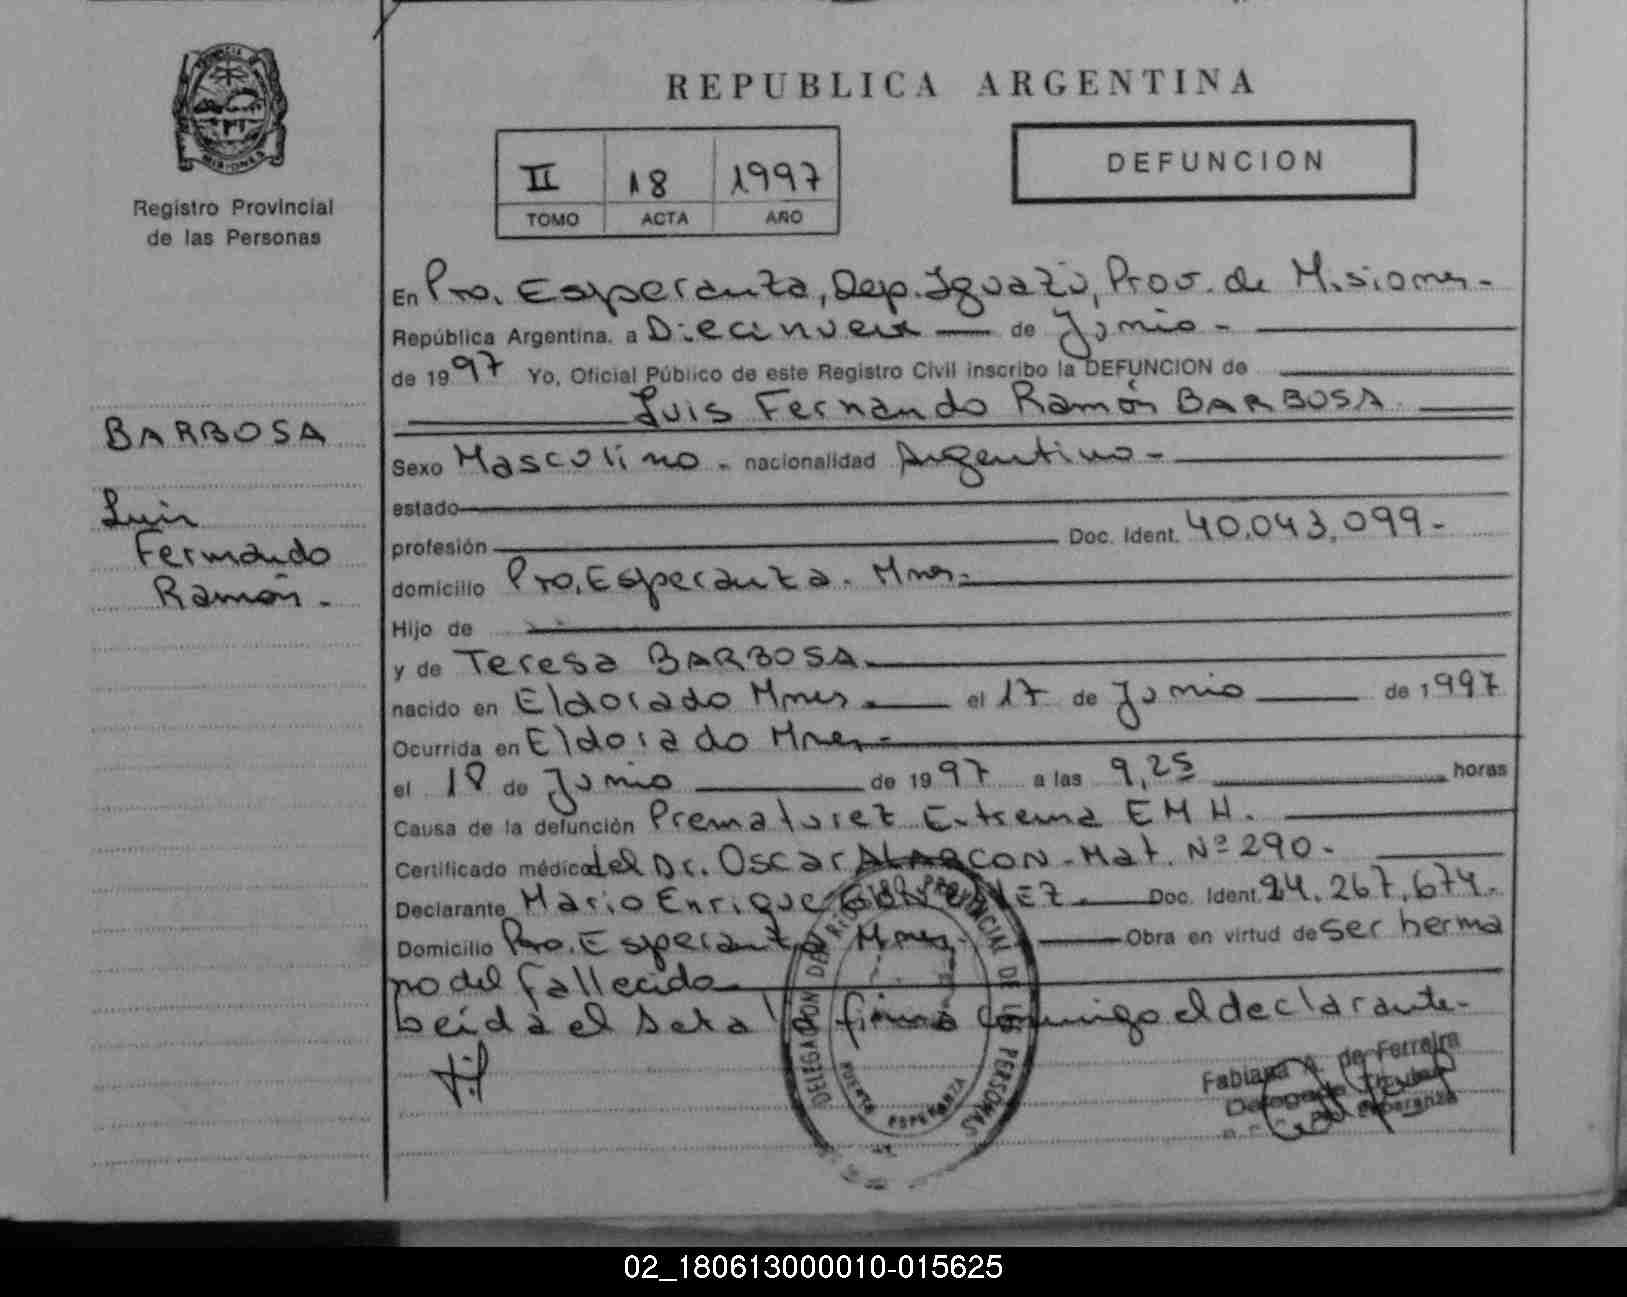 REPUBLICA ARGENTINA
PROVINCIA
MISIONES
Registro Provincial
de las Personas
II 18 1997
TOMO ACTA AÑO
DEFUNCION
BARBOSA
Luis
Fernando
Ramón.-
En Pto. Esperanza, Dep. Iguazú, Prov. de Misiones.-
República Argentina, a Diecinueve de Junio -
de 1997 Yo, Oficial Público de este Registro Civil inscribo la DEFUNCION de
Luis Fernando Ramón BARBOSA
Sexo Masculino - nacionalidad Argentino -
estado
profesión Doc. Ident. 40.043.099-
domicilio Pto. Esperanza. Mnes.
Hijo de
y de Teresa BARBOSA.
nacido en Eldorado Mnes el 17 de Junio de 1997
Ocurrida en Eldorado Mnes-
el 18 de Junio de 1997 a las 9,25 horas
Causa de la defunción Prematurez Extrema EMH.
Certificado médico del Dr. Oscar ALARCON - Mat. Nº 290.
Declarante Mario Enrique Doc. Ident. 24.267.674.
Domicilio Pto. Esperanza Mnes. Obra en virtud de ser herma
no del fallecido
Leída el Acta firma conmigo el declarante-
DELEGACION DEL REGISTRO PROVINCIAL DE LAS PERSONAS
PUERTO ESPERANZA
Fabiana A. de Ferreira
Delegada Titular
Pto. Esperanza
02_180613000010-015625